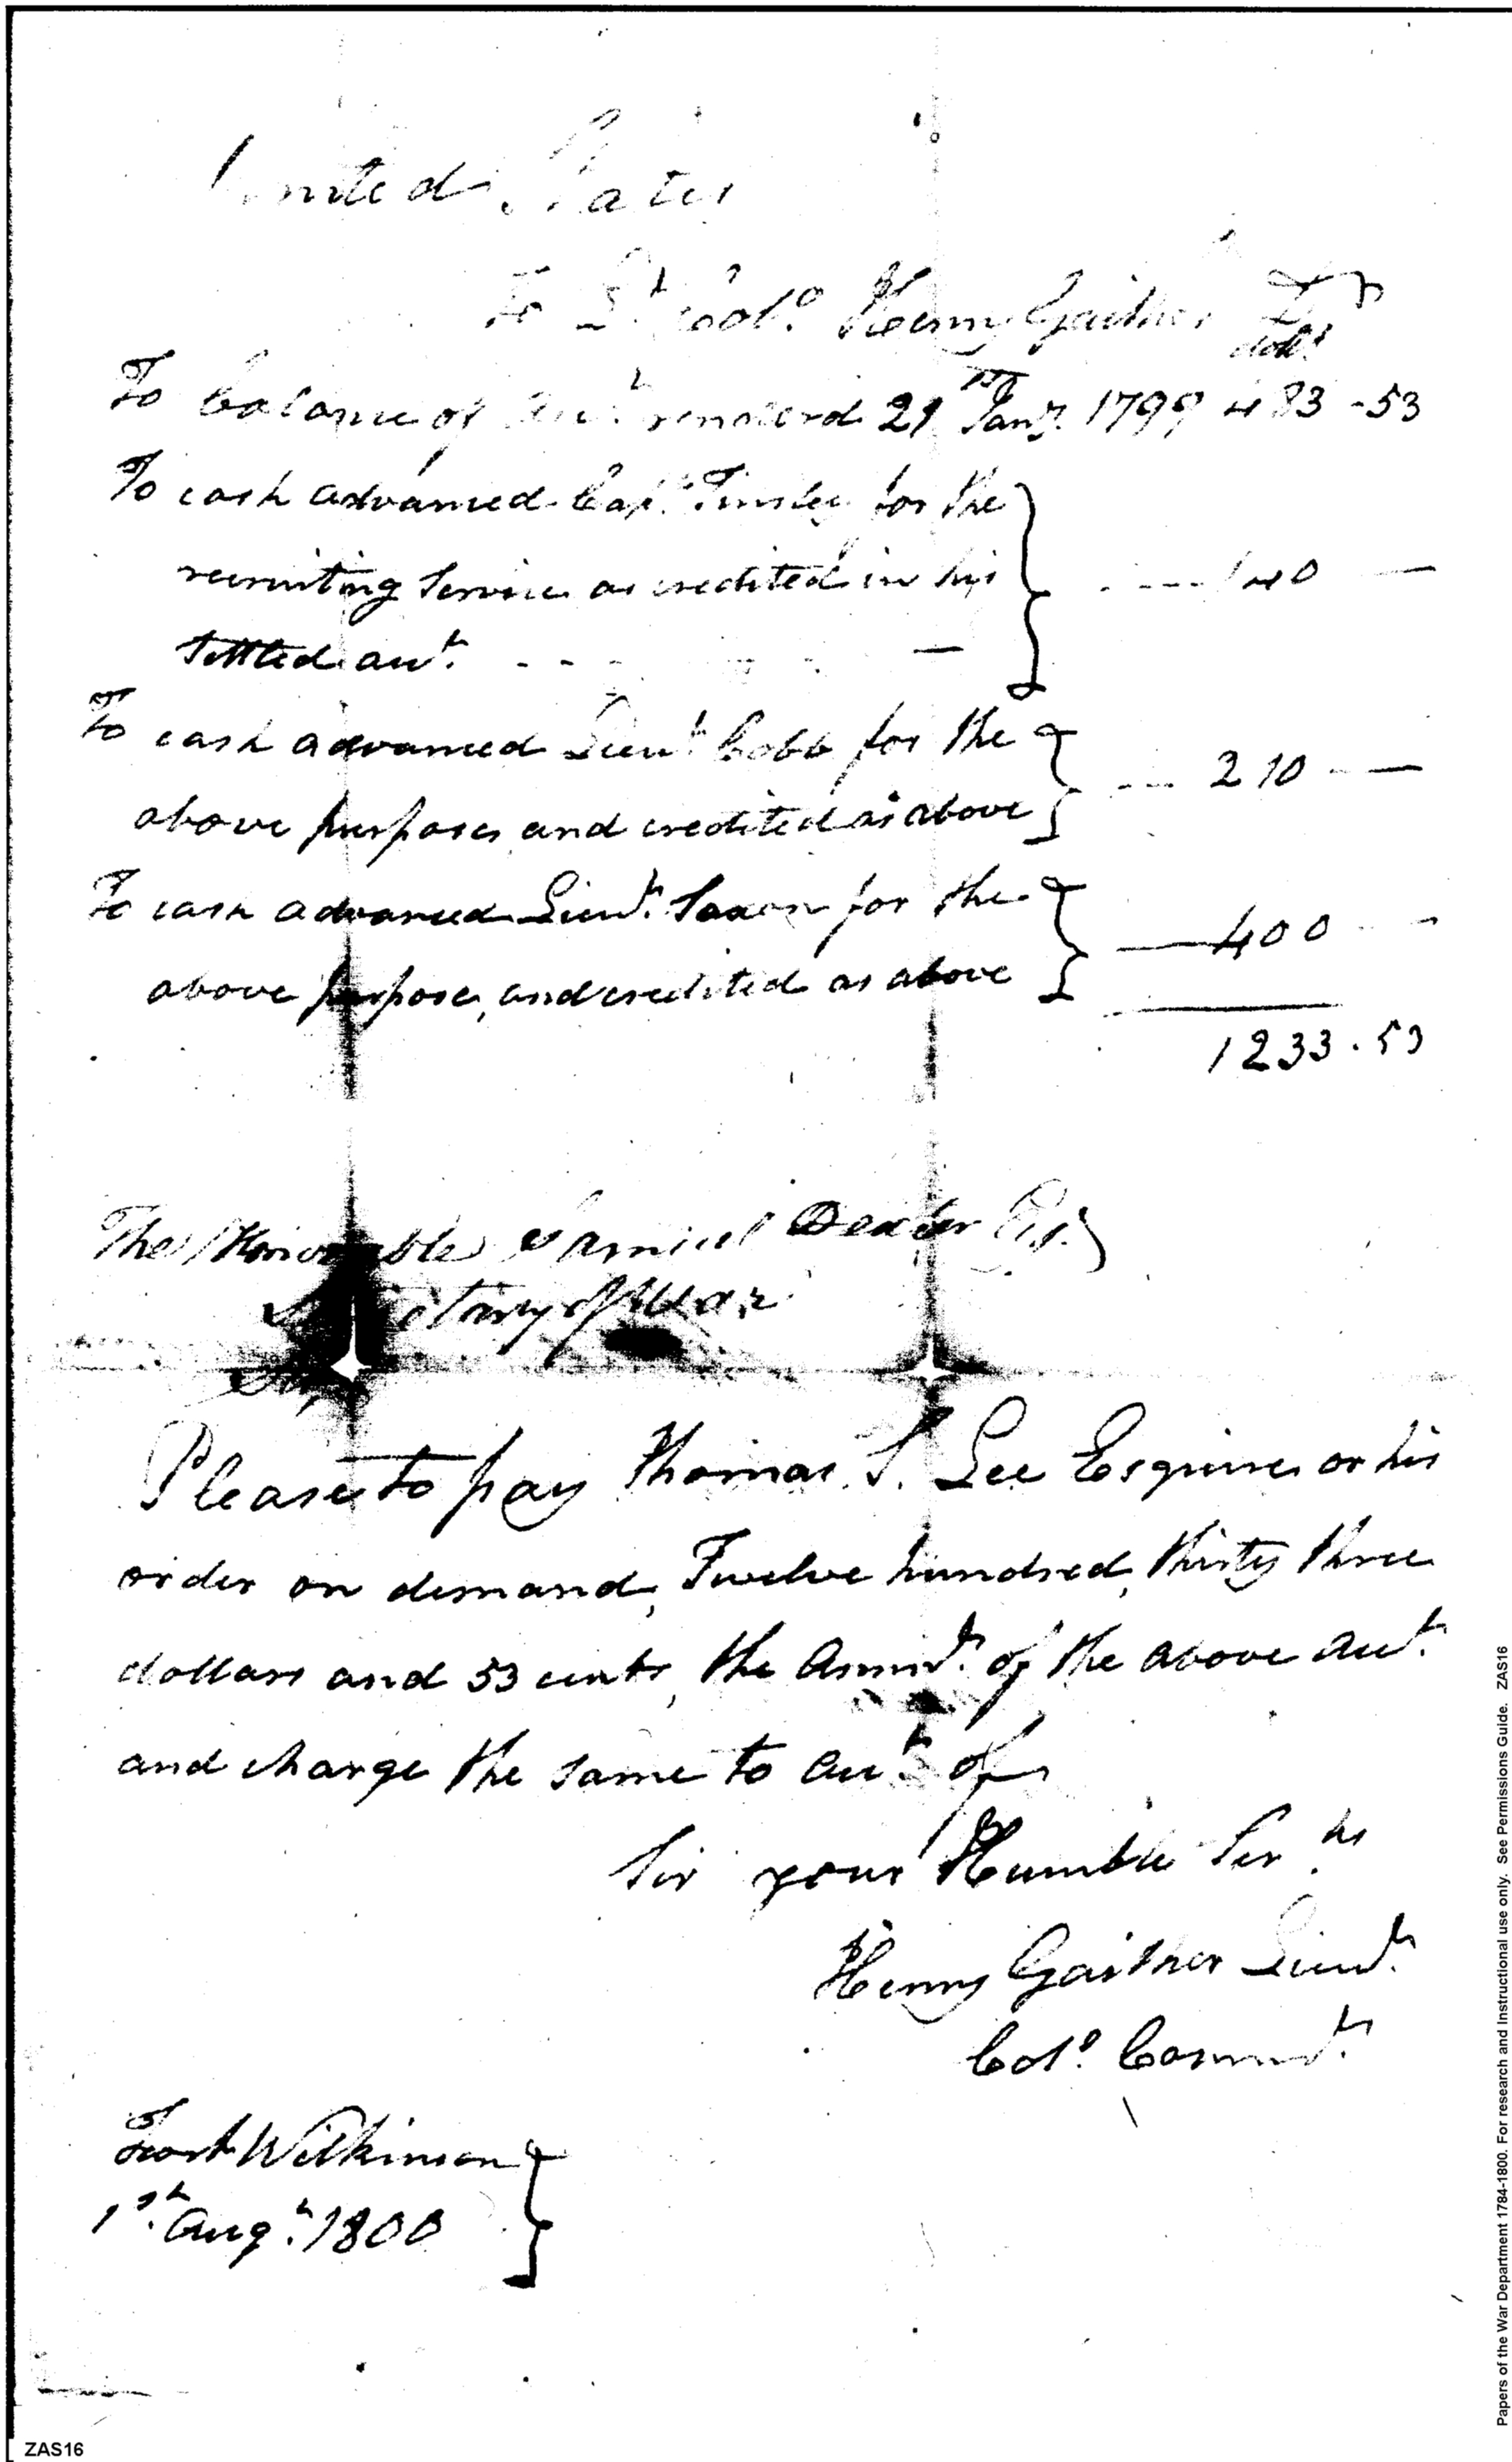 United States
To Lt. Colo. Henry Gaither Dr
dolls
To balance of Acct. renderd 29th Jany. 1799 483-53
To cash advanced Capt. Tinsley for the
recruiting service as credited in his ---- 140 —
settled acct. - - - —
To cash advanced Lieut. Cobb for the
above purposes and credited as above --- 210 - —
To cash advanced Lieut. Saxon for the
above purpose, and credited as above — 400 - -
1233.53
The Honorable Samuel Dexter Esq.
Secretary of War
Sir,
Please to pay Thomas S. Lee Esquire or his
order on demand, Twelve hundred, thirty three
dollars and 53 cents, the Amnt. of the above acct.
and charge the same to acct. of
Sir your Humble Servt.
Henry Gaither Lieut.
Colo. Commt.
Fort Wilkinson
1st. Augt. 1800
ZAS16
Papers of the War Department 1784-1800. For research and Instructional use only. See Permissions Guide. ZAS16